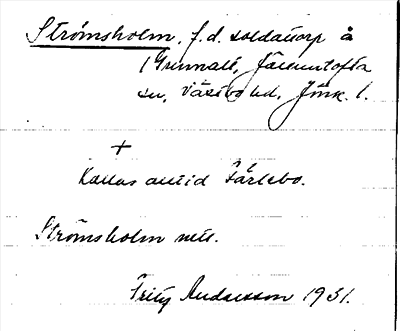 Strömsholm, f.d. soldattorp å
Grimnalt, Jälluntofta
sn, Västbo hd, Jönk. l.
+
Kallas alltid Färlebo.
Strömsholm
Fritz Andersson 1931.